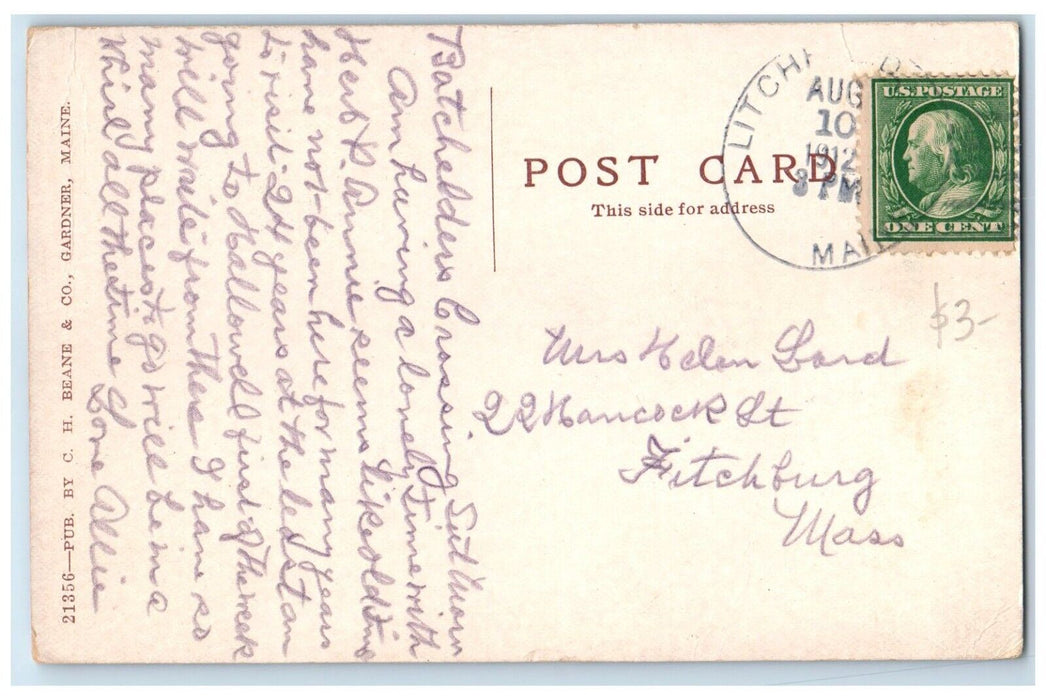 Batchelders Crossing Sat Morn
Am having a lonely time with
Herb & Annie seems like old time
have not been here for many years
to visit 24 years at the least am
going to Hallowell first of the week
will write from there I have so
many places to go will be in a
whirl all the time Love Allie
21356—PUB. BY C. H. BEANE & CO., GARDNER, MAINE.
POST CARD
This side for address
LITCHF
AUG
10
1912
3 PM
MAINE
U.S. POSTAGE
ONE CENT
$3-
Mrs Helen Lord
22 Hancock St
Fitchburg
Mass